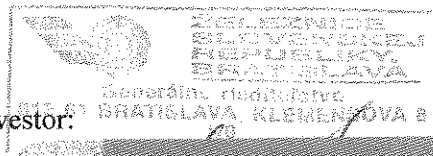 ŽELEZNICE
SLOVENSKEJ
REPUBLIKY,
BRATISLAVA
Generálne riaditeľstvo
813 61 BRATISLAVA, KLEMENSOVA 8
vestor: